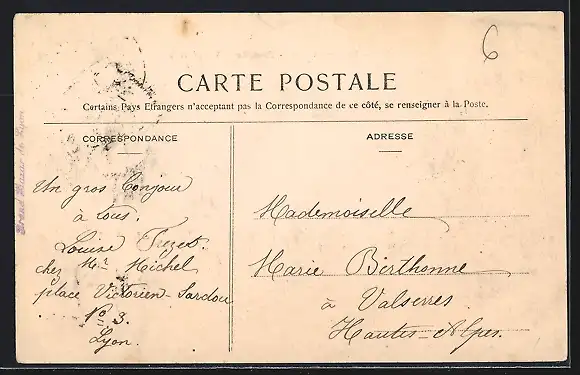 6
CARTE POSTALE
Certains Pays Etrangers n'acceptant pas la Correspondance de ce côté, se renseigner à la Poste.
CORRESPONDANCE
Un gros bonjour
à tous.
Louise
chez Mr Michel
place Victorien-Sardou
No 3.
Lyon.
ADRESSE
Mademoiselle
Marie Berthonne
à Valserres
Hautes-Alpes.
Grand Bazar de Lyon